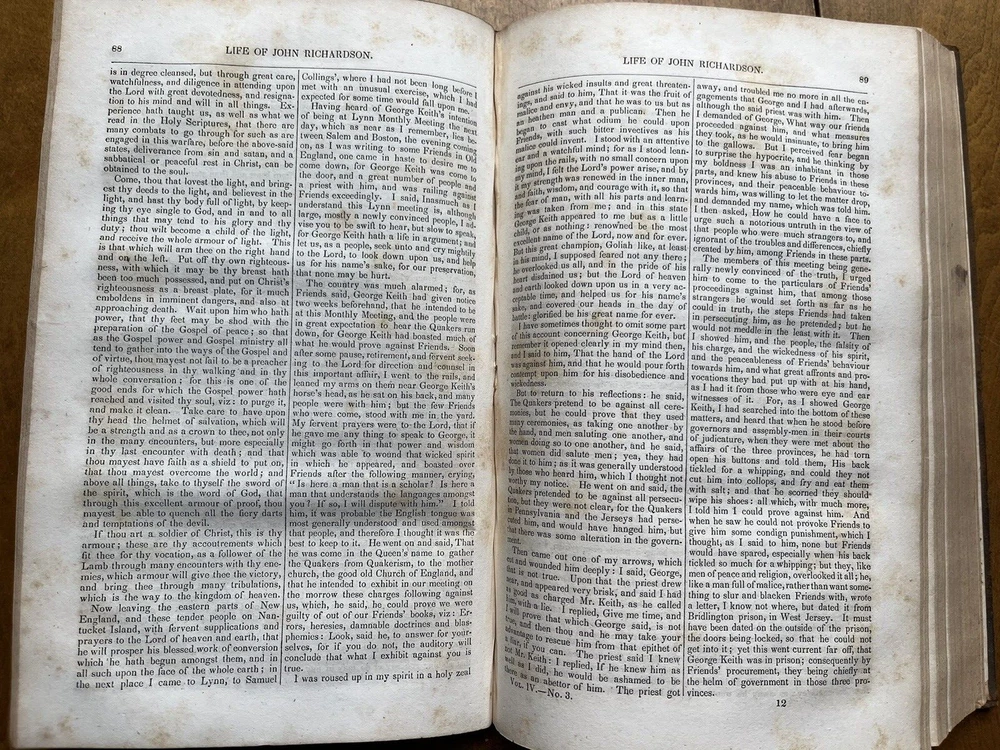 68
LIFE OF JOHN RICHARDSON.
is in degree cleansed, but through great care,
watchfulness, and diligence in attending upon
the Lord with great devotedness, and resigna-
tion to his mind and will in all things. Ex-
perience hath taught us, as well as what we
read in the Holy Scriptures, that there are
many combats to go through for such as are
engaged in this warfare, before the above-said
states, deliverance from sin and satan, and a
sabbatical or peaceful rest in Christ, can be
obtained to the soul.
Come, thou that lovest the light, and bring-
est thy deeds to the light, and believest in the
light, and hast thy body full of light, by keep-
ing thy eye single to God, and in and to all
things that may tend to his glory and thy
duty; thou wilt become a child of the light,
and receive the whole armour of light. This
is that which will arm thee on the right hand
and on the left. Put off thy own righteous-
ness, with which it may be thy breast hath
been too much possessed, and put on Christ's
righteousness as a breast plate, for it much
emboldens in imminent dangers, and also at
approaching death. Wait upon him who hath
power, that thy feet may be shod with the
preparation of the Gospel of peace; so that
as the Gospel power and Gospel ministry all
tend to gather into the ways of the Gospel and
of virtue, thou mayest not fail to be a preacher
of righteousness in thy walking and in thy
whole conversation; for this is one of the
good ends for which the Gospel power hath
reached and visited thy soul, viz: to purge it,
and make it clean. Take care to have upon
thy head the helmet of salvation, which will
be a strength and as a crown to thee, not only
in the many encounters, but more especially
in thy last encounter with death; and that
thou mayest have faith as a shield to put on,
that thou mayest overcome the world; and
above all things, take to thyself the sword of
the spirit, which is the word of God, that
through this excellent armour of proof, thou
mayest be able to quench all the fiery darts
and temptations of the devil.
If thou art a soldier of Christ, this is thy
armour; these are thy accoutrements which
fit thee for thy vocation, as a follower of the
Lamb through many encounters with thy ene-
mies, which armour will give thee the victory,
and bring thee through many tribulations,
which is the way to the kingdom of heaven.
Now leaving the eastern parts of New
England, and these tender people on Nan-
tucket Island, with fervent supplications and
prayers to the Lord of heaven and earth, that
he will prosper his blessed work of conversion
which he hath begun amongst them, and in
all such upon the face of the whole earth; in
the next place I came to Lynn, to Samuel
Collings', where I had not been long before I
met with an unusual exercise, which I had
expected for some time would fall upon me.
Having heard of George Keith's intention
of being at Lynn Monthly Meeting the next
day, which as near as I remember, lies be-
tween Salem and Boston, the evening coming
on, as I was writing to some Friends in Old
England, one came in haste to desire me to
come down, for George Keith was come to
the door, and a great number of people and
a priest with him, and was railing against
Friends exceedingly. I said, Inasmuch as I
understand this Lynn meeting is, although
large, mostly a newly convinced people, I ad-
vise you to be swift to hear, but slow to speak,
for George Keith hath a life in argument; and
let us, as a people, seek unto and cry mightily
to the Lord, to look down upon us, and help
us for his name's sake, for our preservation,
that none may be hurt.
The country was much alarmed; for, as
Friends said, George Keith had given notice
two weeks beforehand, that he intended to be
at this Monthly Meeting, and the people were
in great expectation to hear the Quakers run
down, for George Keith had boasted much of
what he would prove against Friends. Soon
after some pause, retirement, and fervent seek-
ing to the Lord for direction and counsel in
this important affair, I went to the rails, and
leaned my arms on them near George Keith's
horse's head, as he sat on his back, and many
people were with him; but the few Friends
who were come, stood with me in the yard.
My fervent prayers were to the Lord, that if
he gave me any thing to speak to George, it
might go forth in that power and wisdom
which was able to wound that wicked spirit
in which he appeared, and boasted over
Friends after the following manner, crying,
"Is here a man that is a scholar? Is here a
man that understands the languages amongst
you? If so, I will dispute with him." I told
him, it was probable the English tongue was
most generally understood and used amongst
that people, and therefore I thought it was the
best to keep to it. He went on and said, That
he was come in the Queen's name to gather
the Quakers from Quakerism, to the mother
church, the good old Church of England, and
that he intended to exhibit in our meeting on
the morrow these charges following against
us, which, he said, he could prove we were
guilty of out of our Friends' books, viz: Er-
rors, heresies, damnable doctrines and blas-
phemies: Look, said he, to answer for your-
selves, for if you do not, the auditory will
conclude that what I exhibit against you is
true.
I was roused up in my spirit in a holy zeal
LIFE OF JOHN RICHARDSON.
89
against his wicked insults and great threaten-
ings, and said to him, That it was the fruit of
malice and envy, and that he was to us but as
an heathen man and a publican. Then he
began to cast what odium he could upon
Friends, with such bitter invectives as his
malice could invent. I stood with an attentive
ear and a watchful mind; for as I stood lean-
ing upon the rails, with no small concern upon
my mind, I felt the Lord's power arise, and by
it my strength was renewed in the inner man,
and faith, wisdom, and courage with it, so that
the fear of man, with all his parts and learn-
ing was taken from me; and in this state
George Keith appeared to me but as a little
child, or as nothing: renowned be the most
excellent name of the Lord, now and for ever.
But this great champion, Goliah like, at least
in his mind, I supposed feared not any there;
he overlooked us all, and in the pride of his
heart disdained us; but the Lord of heaven
and earth looked down upon us in a very ac-
ceptable time, and helped us for his name's
sake, and covered our heads in the day of
battle: glorified be his great name for ever.
I have sometimes thought to omit some part
of this account concerning George Keith, but
remember it opened clearly in my mind then,
and I said to him, That the hand of the Lord
was against him, and that he would pour forth
contempt upon him for his disobedience and
wickedness.
But to return to his reflections: he said,
The Quakers pretend to be against all cere-
monies, but he could prove that they used
many ceremonies, as taking one another by
the hand, and men saluting one another, and
women doing so to one another, and he said,
that women did salute men; yea, they had
done it to him; as it was generally understood
by those who heard him, which I thought not
worthy my notice. He went on and said, the
Quakers pretended to be against all persecu-
tion, but they were not clear, for the Quakers
in Pennsylvania and the Jerseys had perse-
cuted him, and would have hanged him, but
that there was some alteration in the govern-
ment.
Then came out one of my arrows, which
cut and wounded him deeply: I said, George,
that is not true. Upon that the priest drew
near, and appeared very brisk, and said I had
as good as charged Mr. Keith, as he called
him, with a lie. I replied, Give me time, and
I will prove that which George said is not
true, and then thou and he may take your
advantage to rescue him from that epithet of
a liar, if you can. The priest said I knew
not Mr. Keith: I replied, If he knew him as
well as I did, he would be ashamed to be
there as an abettor of him. The priest got
Vol. IV.—No. 3.
away, and troubled me no more in all the en-
gagements that George and I had afterwards,
although the said priest was with him. Then
I demanded of George, What way our friends
proceeded against him, and what measures
they took, as he would insinuate, to bring him
to the gallows. But I perceived fear began
to surprise the hypocrite, and he thinking by
my boldness I was an inhabitant in those
parts, and knew his abuse to Friends in these
provinces, and their peaceable behaviour to-
wards him, was willing to let the matter drop,
and demanded my name, which was told him.
I then asked, How he could have a face to
urge such a notorious untruth in the view of
that people who were much strangers to, and
ignorant of the troubles and differences, chiefly
created by him, among Friends in these parts.
The members of this meeting being gene-
rally newly convinced of the truth, I urged
him to come to the particulars of Friends'
proceedings against him, that among those
strangers he would set forth as far as he
could in truth, the steps Friends had taken
in persecuting him, as he pretended; but he
would not meddle in the least with it. Then
I showed him, and the people, the falsity of
his charge, and the wickedness of his spirit,
and the peaceableness of Friends' behaviour
towards him, and what great affronts and pro-
vocations they had put up with at his hand,
as I had it from those who were eye and ear
witnesses of it. For, as I showed George
Keith, I had searched into the bottom of these
matters, and heard that when he stood before
governors and assembly-men in their courts
of judicature, when they were met about the
affairs of the three provinces, he had torn
open his buttons and told them, His back
tickled for a whipping, and could they not
cut him into collops, and fry and eat them
with salt; and that he scorned they should
wipe his shoes: all which, with much more,
I told him I could prove against him. And
when he saw he could not provoke Friends to
give him some condign punishment, which I
thought, as I said to him, none but Friends
would have spared, especially when his back
tickled so much for a whipping; but they, like
men of peace and religion, overlooked it all; he,
like a man full of malice, rather than want some-
thing to slur and blacken Friends with, wrote
a letter, I know not where, but dated it from
Bridlington prison, in West Jersey. It must
have been dated on the outside of the prison,
the doors being locked, so that he could not
get into it; yet this went current far off, that
George Keith was in prison; consequently by
Friends' procurement, they being chiefly at
the helm of government in those three pro-
vinces.
12